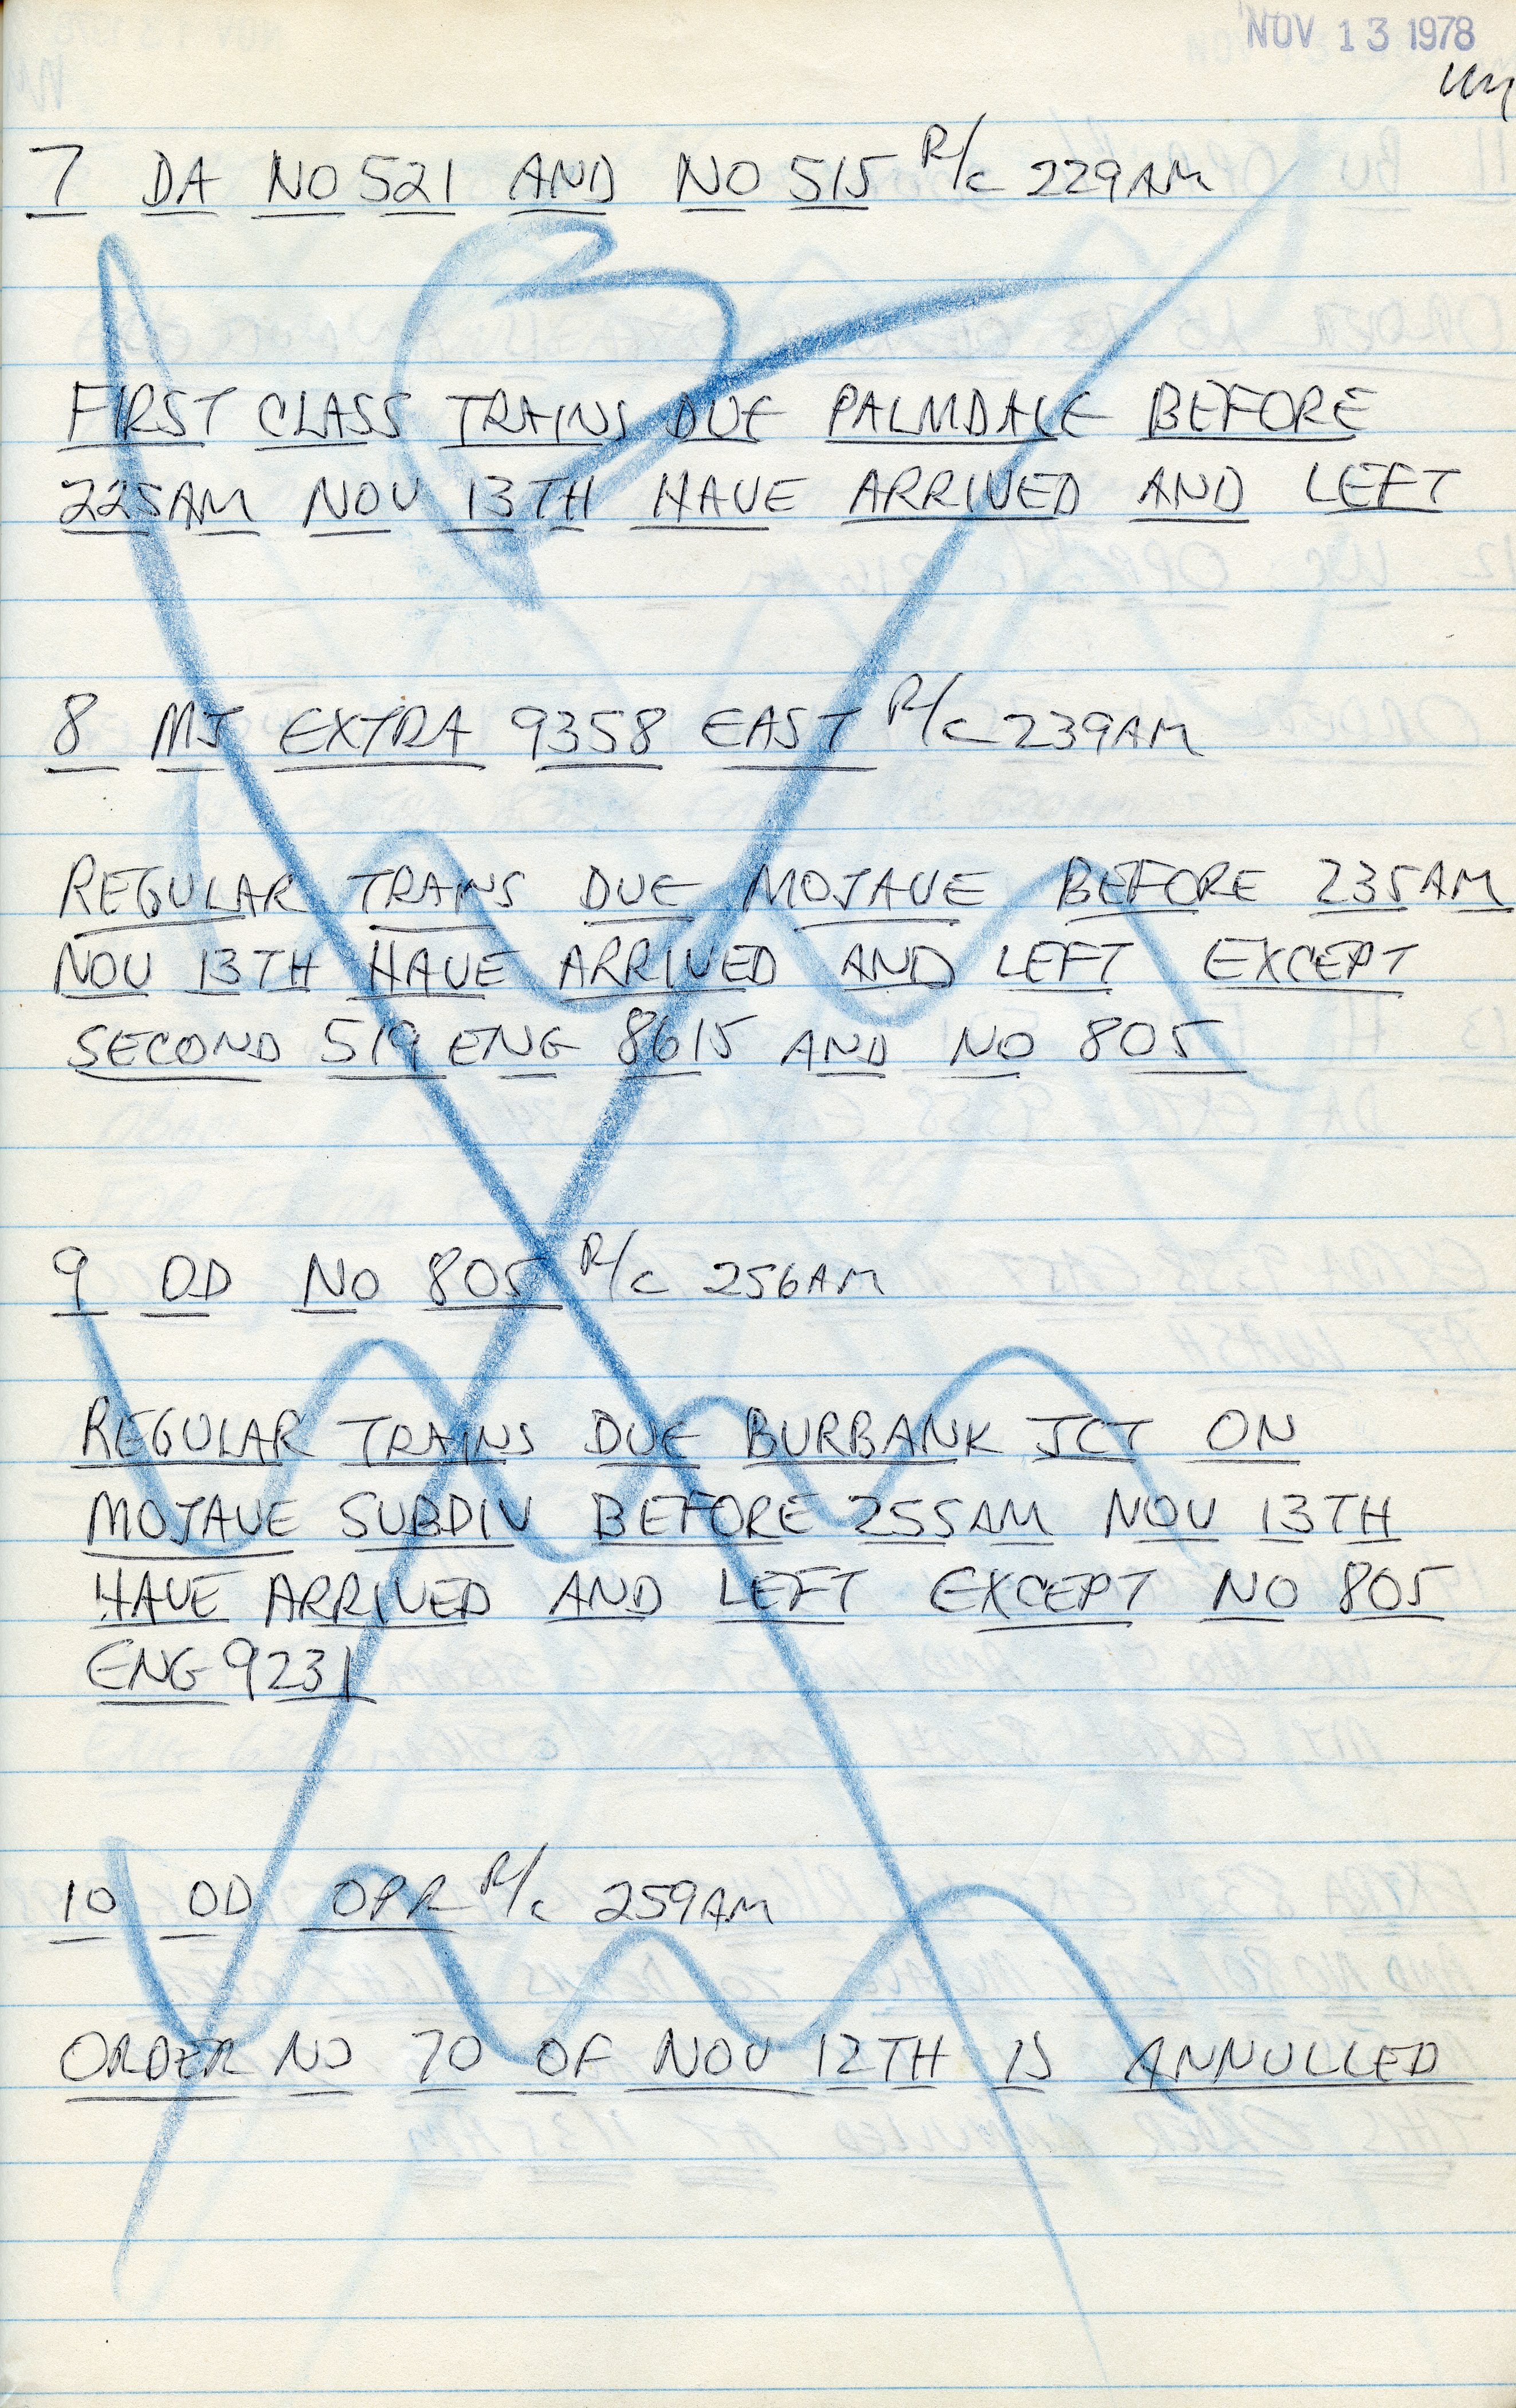 NOV 13 1978
7 DA NO 521 AND NO 515 R/c 229AM
FIRST CLASS TRAINS DUE PALMDALE BEFORE
225AM NOV 13TH HAVE ARRIVED AND LEFT
8 MJ EXTRA 9358 EAST R/c 239AM
REGULAR TRAINS DUE MOJAVE BEFORE 235AM
NOV 13TH HAVE ARRIVED AND LEFT EXCEPT
SECOND 519 ENG 8615 AND NO 805
9 OD NO 805 R/c 256AM
REGULAR TRAINS DUE BURBANK JCT ON
MOJAVE SUBDIV BEFORE 255AM NOV 13TH
HAVE ARRIVED AND LEFT EXCEPT NO 805
ENG 9231
10 OD OPR R/c 259AM
ORDER NO 70 OF NOV 12TH IS ANNULLED